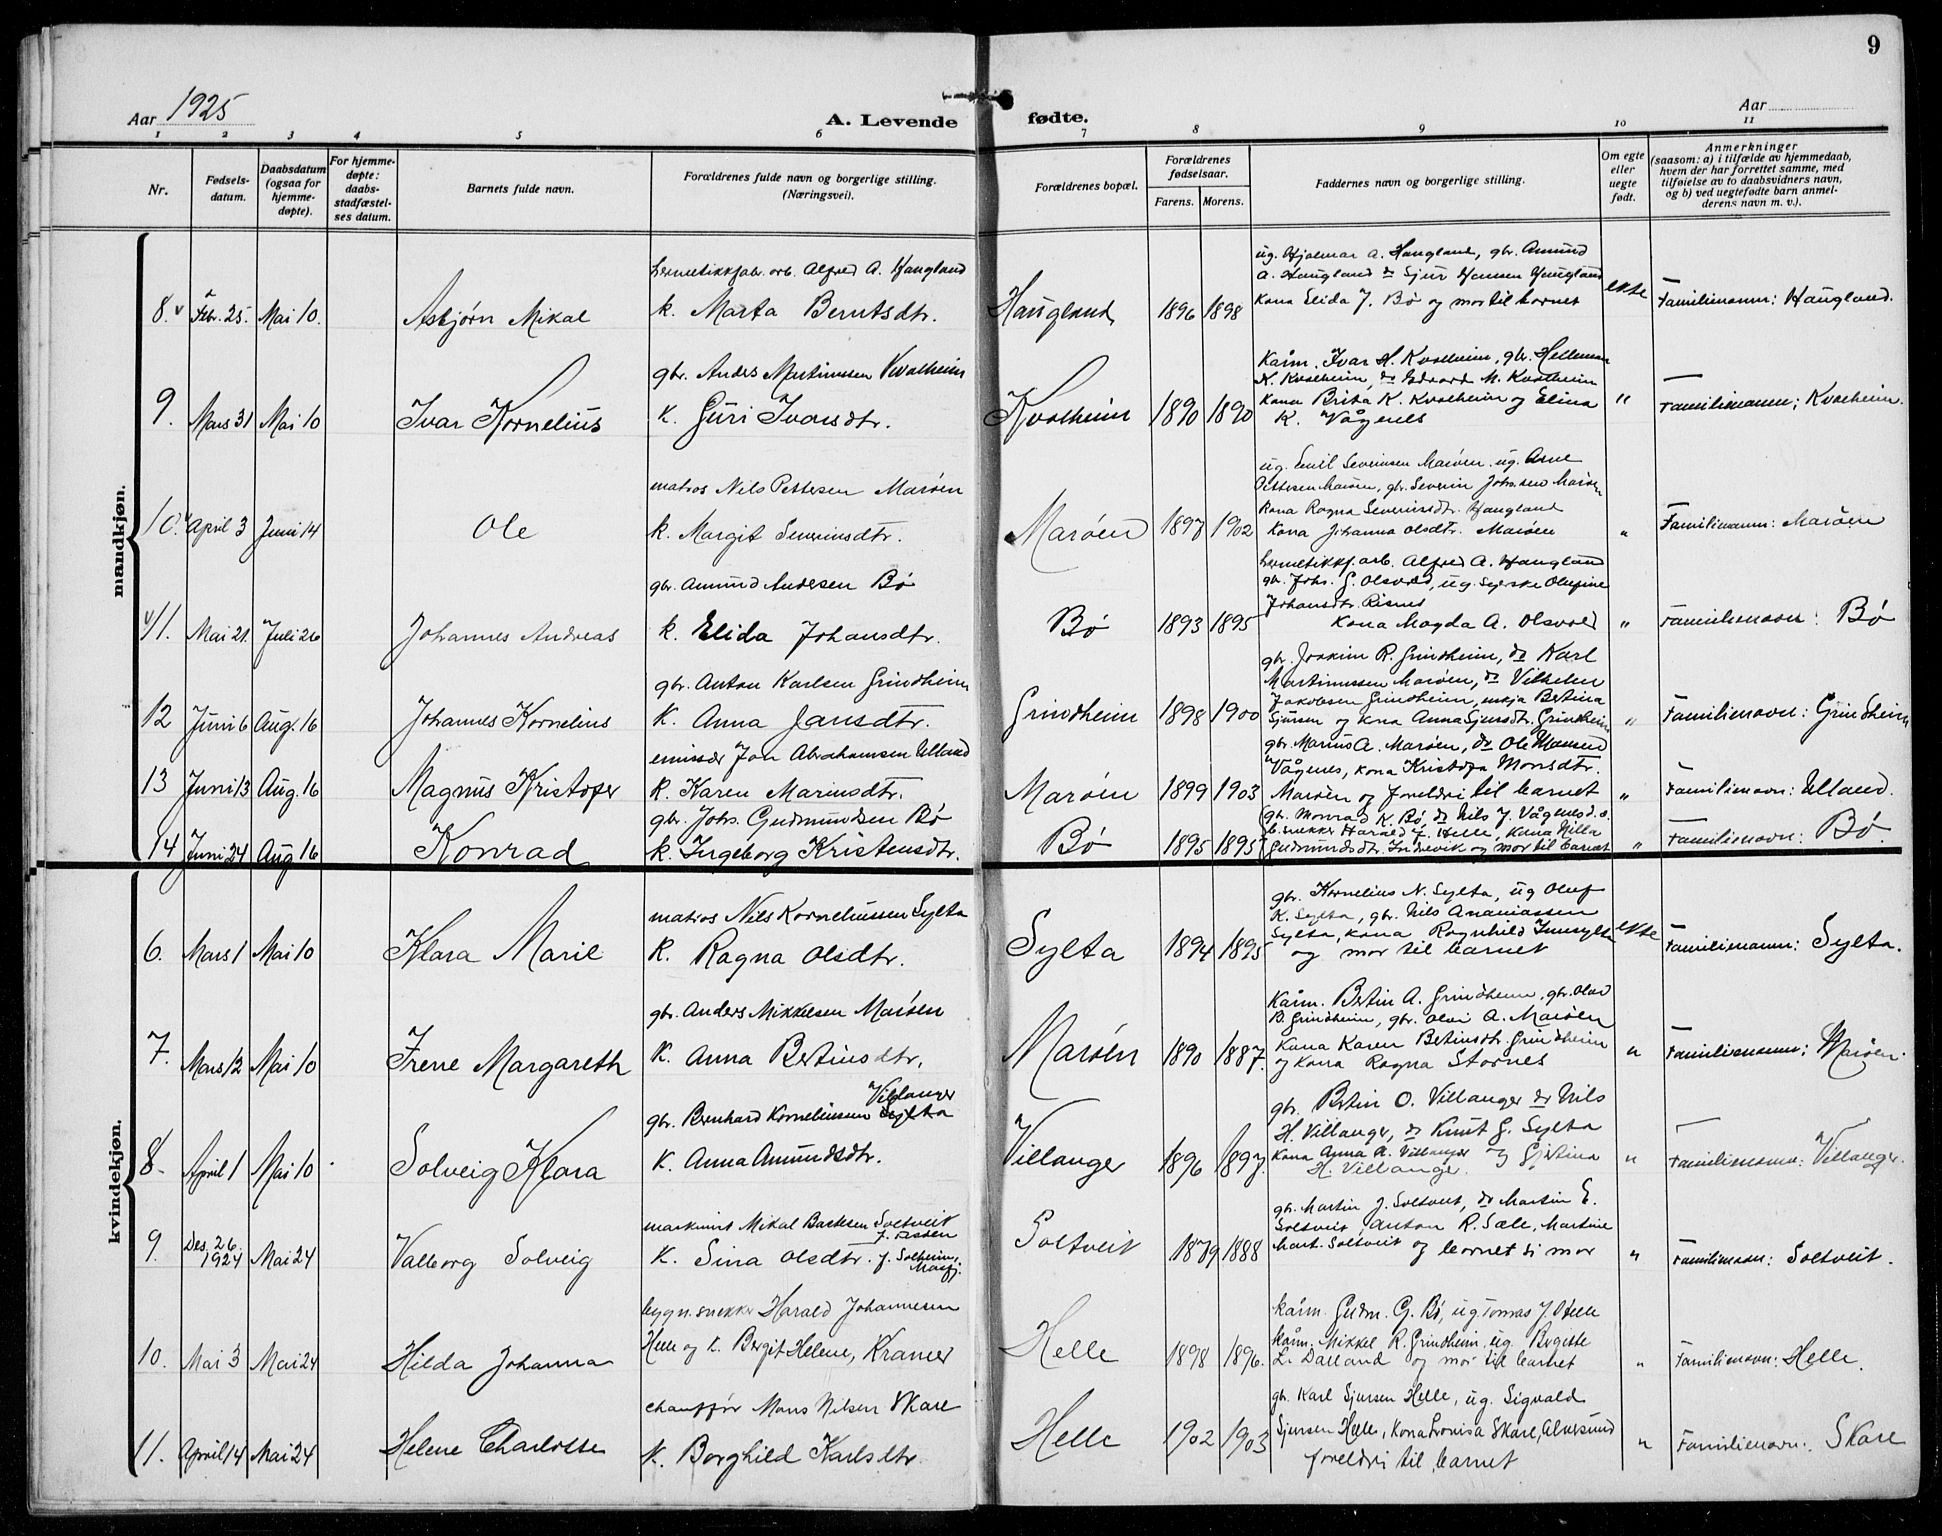 9
Aar 1925
A. Levende
fødte.
Aar
1 2 3 4 5 6 7 8 9 10 11
Nr.
Fødsels-
datum.
Daabsdatum
(ogsaa for
hjemme-
døpte).
For hjemme-
døpte:
daabs-
stadfæstel-
ses datum.
Barnets fulde navn.
Forældrenes fulde navn og borgerlige stilling.
(Næringsvei).
Forældrenes bopæl.
Forældrenes
fødselsaar.
Farens. Morens.
Faddernes navn og borgerlige stilling.
Om egte
eller
uegte
født.
Anmerkninger
(saasom: a) i tilfælde av hjemmedaab,
hvem der har forrettet samme, med
tilføielse av to daabsvidners navn,
og b) ved uegtefødte barn anmel-
derens navn m. v.).
mandkjøn.
hermetikkfabr. arb. Alfred A. Haugland
8. Febr. 25. Mai 10. Asbjørn Mikal k. Marta Berntsdtr. Haugland 1896 1898
ug. Hjalmar A. Haugland, gbr. Amund
A. Haugland do Sjur Hansen Haugland
kona Elida J. Bø og mor til barnet
ekte Familienamn: Haugland.
gbr. Anders Martinussen Kvalheim
9. Mars 31 Mai 10 Ivar Kornelius k. Guri Ivarsdtr. Kvalheim 1890 1890
Kårm. Ivar H. Kvalheim, gbr. Helleman
K. Kvalheim, do Edvard M. Kvalheim
kona Brita K. Kvalheim og Elina
K. Vågenes
" Familienamn; Kvalheim.
matros Nils Pettersen Marøen
10. April 3 Juni 14 Ole k. Margit Severinsdtr. Marøen 1897 1902
ug. Emil Severinsen Marøen. ug. Arne
Pettersen Marøen, gbr. Severin Johs.sen Marøen
kona Ragna Severinsdtr. Haugland
Kona Johanna Olsdtr. Marøen
" Familienamn: Marøen
gbr. Amund Andersen Bø
11. Mai 21. Juli 26 Johannes Andreas k. Elida Johansdtr. Bø 1893 1895
hermetikkf. arb. Alfred A. Haugland
gbr. Johs. G. Olsvold, ug. syerske Olufine
Johansdtr. Risnes
kona Magda A. Olsvold
" Familienavn: Bø
gbr. Anton Karlsen Grindheim
12 Juni 6 Aug. 16 Johannes Kornelius k. Anna Jansdtr. Grindheim 1898 1900
gbr. Joakim R. Grindheim, do Karl
Martinussen Marøen, do Vilhelm
Jakobsen Grindheim, enkja Bertina
Sjursen og kna Anna Sjursdtr. Grindheim
" Familienavn: Grindheim
emissær Jon Abrahamsen Ulland
13 Juni 13 Aug. 16 Magnus Kristofer k. Karen Marinsdtr. Marøen 1899 1903
gbr. Marius A. Marøen, do Ole Monsend
Vågenes, kona Kristofa Monsdtr.
Marøen og foreldri til barnet
" Familienavn: Ulland.
gbr. Johs. Gudmundsen Bø
14 Juni 24 Aug 16 Konrad k. Ingeborg Kristensdtr. Bø 1895 1895
gbr. Monrad K. Bø, do Nils J. Vågenes d.s.
b. snekker Harald J. Helle, kona Nilla
Gudmundsdtr. Indrevik og mor til barnet
" Familienavn: Bø.
kvindekjøn.
matros Nils Korneliussen Sylta
6. Mars 1 Mai 10 Klara Marie k. Ragna Olsdtr. Sylta 1894 1895
gbr. Kornelius N. Sylta, ug Oluf
K. Sylta, gbr. Nils Ananiassen
Sylta, kona Ragnhild Innsylta
og mor til barnet
ekte Familienamn: Sylta.
gbr. Anders Mikkelsen Marøen
7. Mars 12 Mai 10 Irene Margareth k. Anna Bertinsdtr. Marøen 1890 1887.
Kårm. Bertin A. Grindheim, gbr. Olav
B. Grindheim, gbr. Olai A. Marøen
Kona Karen Bertinsdtr. Grindheim
og kona Ragna Stornes
" Familienamn; Marøen.
Villanger
gbr. Bernhard Korneliussen Sylta
8. April 1 Mai 10 Solveig Klara k. Anna Amundsdtr. Villanger 1896 1897.
gbr. Bertin O. Villanger do Nils
H. Villanger, do Knut G. Sylta
Kona Anna A. Villanger og Gjertina
H. Villanger.
" Familienamn: Villanger.
maskinist Mikal Bastesen Soltveit
9. Des. 26. 1924 Mai 24 Valborg Solveig k. Sina Olsdtr. f. Solheim, Masfj. Soltveit 1879 1888
gbr. Martin J. Soltveit, do Martin E.
Soltveit, Anton R. Sæle, Martine
Mart. Soltveit og barnet si mor
" Familienavn: Soltveit.
bygn. snekker Harald Johannesen
10. Mai 3 Mai 24 Hilda Johanna Helle og k. Bergit Helene, Kramer Helle 1898 1896.
kårm. Gudm. G. Bø, ug Tomas J Helle
kårm. Mikkel R. Grindheim, ug. Birgitte
L. Dalland og mor til barnet
" Familienavn: Helle.
chauffør Mons Nilsen Skare
11. April 14 Mai 24 Helene Charlotte k. Borghild Karlsdtr. Helle 1902 1903
gbr. Karl Sjursen Helle, ug. Sigvald
Sjursen Helle, Kona Lovisa Skare, Alversund
foreldri til barnet
" Familienavn: Skare